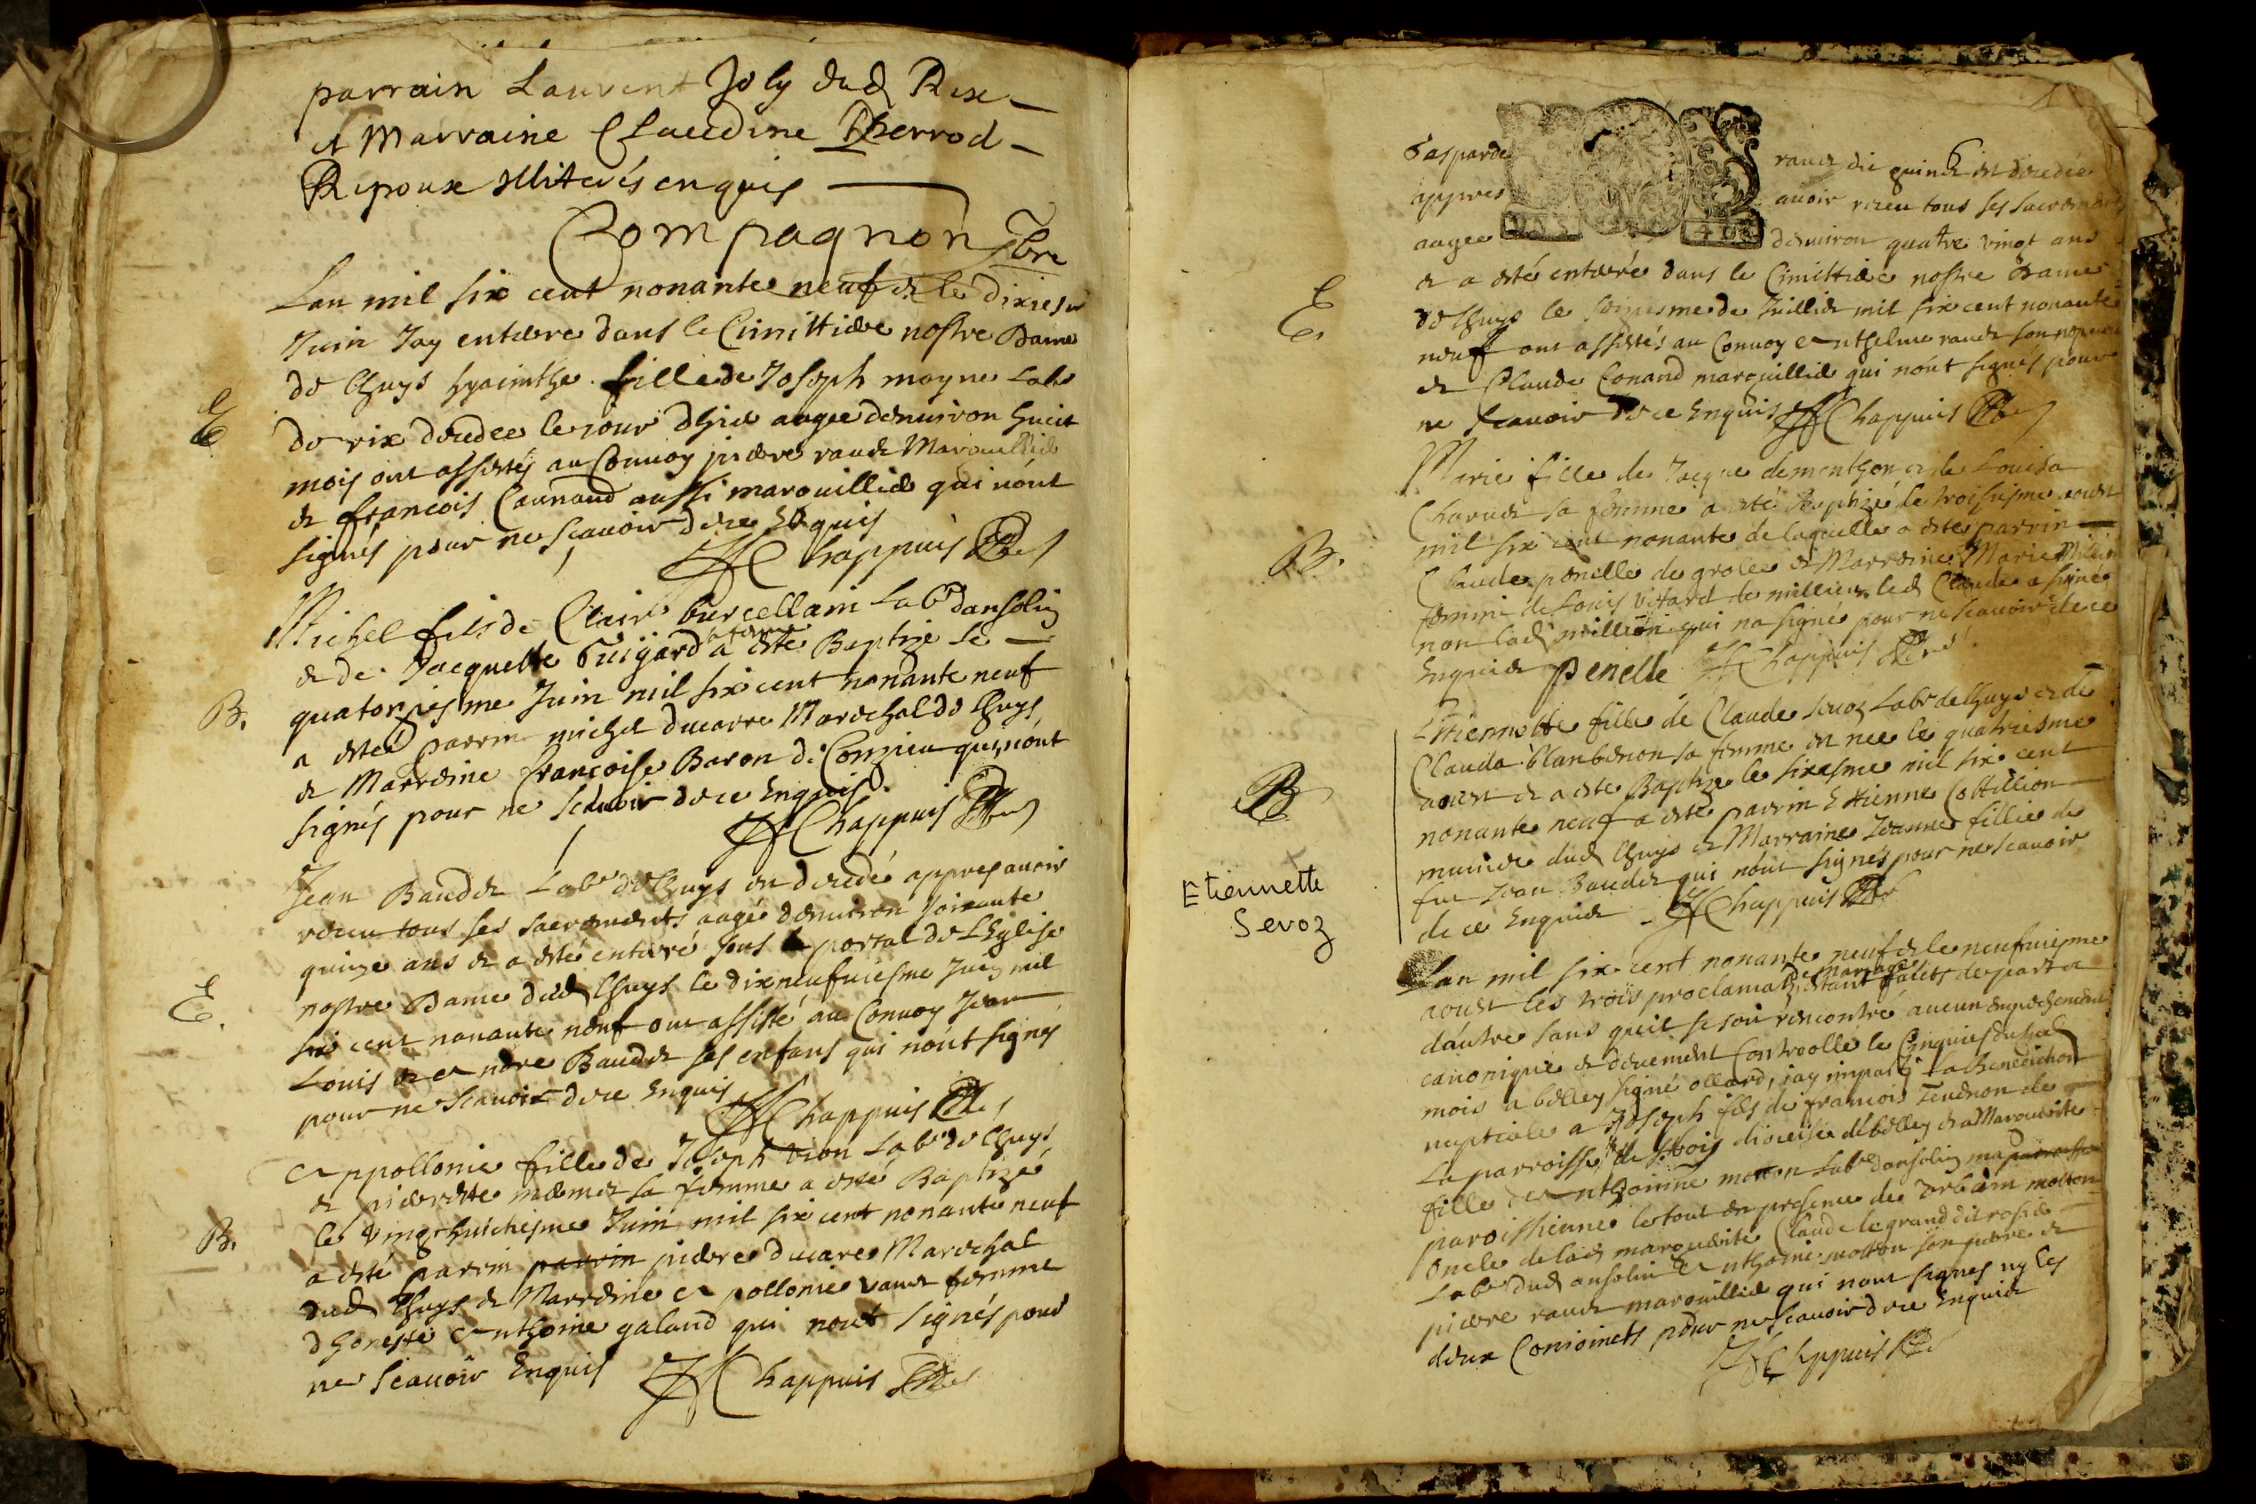 parrain Laurent Joly dud Rix
et Marraine Claudine Therrod
Repoux illiterés enquis
Compagnon Pbre
Lan mil six cent nonante neuf & le dixiesme
Juin Jay enterre dans le Cimittiere nostre Dame
de lhuys hyacinthe fille de Joseph moyne Labr
E
de rix decedee le jour dhier aagee denuiron huict
mois ont assistés au Conuoy pierre raude Marouillier
& francois Counand aussi marouillier qui nónt
signés pour ne scauoir de ce Enquis
JC happuis
Michel fils de Clair burcellain Labr dansolin
& de Jacquette Guigard sa femme a esté Baptizé le
quatorziesme Juin mil six cent nonante neuf
B.
a esté parrin michel ducarre Marechal de lhuys
& Marreine francoise Baron de Conzieu qui nónt
signés pour ne scauoir de ce Enquis
JC happuis
Jean Baudet Labr de lhuys est decedé appres auoir
receu tous ses sacrements aagé denuiron soixante
quinze ans & a esté enterré sous le portal de Lhglise
nostre Dame dud lhuys le dixneufuiesme Juin mil
E.
six cent nonante neuf ont assisté au Conuoy Jean
Louis & Andre Baudet ses enfans qui nónt signés
pour ne scauoir de ce Enquis
JC happuis
Appollonie fille de Joseph Labr de lhuys
& pierrette sa femme a esté Baptizé
le vingt huictiesme Juin mil six cent nonante neuf
B.
a esté parrin parrin pierre ducare Marechal
dud lhuys & Marreine Apollonie femme
dhoneste Anthoine galand qui nont signés pour
ne scauoir Enquis JC happuis
Gasparde raude die quinet est decedée
appres auoir receu tous ses sacrements
aagee denuiron quatre vingt ans
& a esté enterée dans le Cimittiere nostre Dame
E
de lhuys le de Juillet mil six cent nonante
neuf ont assistés au Conuoy Anthelme raude son
& Claude Conand marouillier qui nónt signés pour
ne scauoir de ce Enquis JC happuis
Marie fille de Jacque demonthon & de Louisa
sa femme a esté Baptizé le troisiesme aoust
B.
mil six cent nonante de laquelle a esté parrin
Claude penelle de grolee & Marreine Marie Million
femme de Louis Vitard de millieu led Claude a signé
non lad million qui na signé pour ne scauoir de ce
Enquise penelle JC happuis
Etiennette fille de Claude seuoz Labr de lhuys & de
Clauda blanbenon sa femme est nee le quatriesme
B
aoust & a esté Baptize le sixiesme mil six cent
nonante neuf a esté parrin Ettienne Cottillion
dud lhuys & Marraine Jeanne fillie de
Etiennette
Sevoz
fut Jean Baudet qui nónt signés pour ne scauoir
de ce Enquis JC happuis
Lan mil six cent nonante neuf & le neufuiesme
aoust les trois proclamats de mariage estant faites de part &
dáutre sans queil se soit rencontré aucun empechement
canonique & deuement Controolle le Cinquiesme dud
mois a belley signé ollard, jay imparti la Benediction
nuptiale a Joseph fils de francois Tendron de
la parroisse de diocese de belley & a Marouerite
fille de Anthoinne motton Labr dansolin ma paroissiene
paroissienne le tout en presence de vrbain motton
oncle de lad marouerite Claude legrand dit rosier
Labr dud ansolin Anthoine motton son pere &
pierre raude marouillier qui nont signes ny les
deux Conioincts pour ne scauoir de ce Enquis
JC happuis